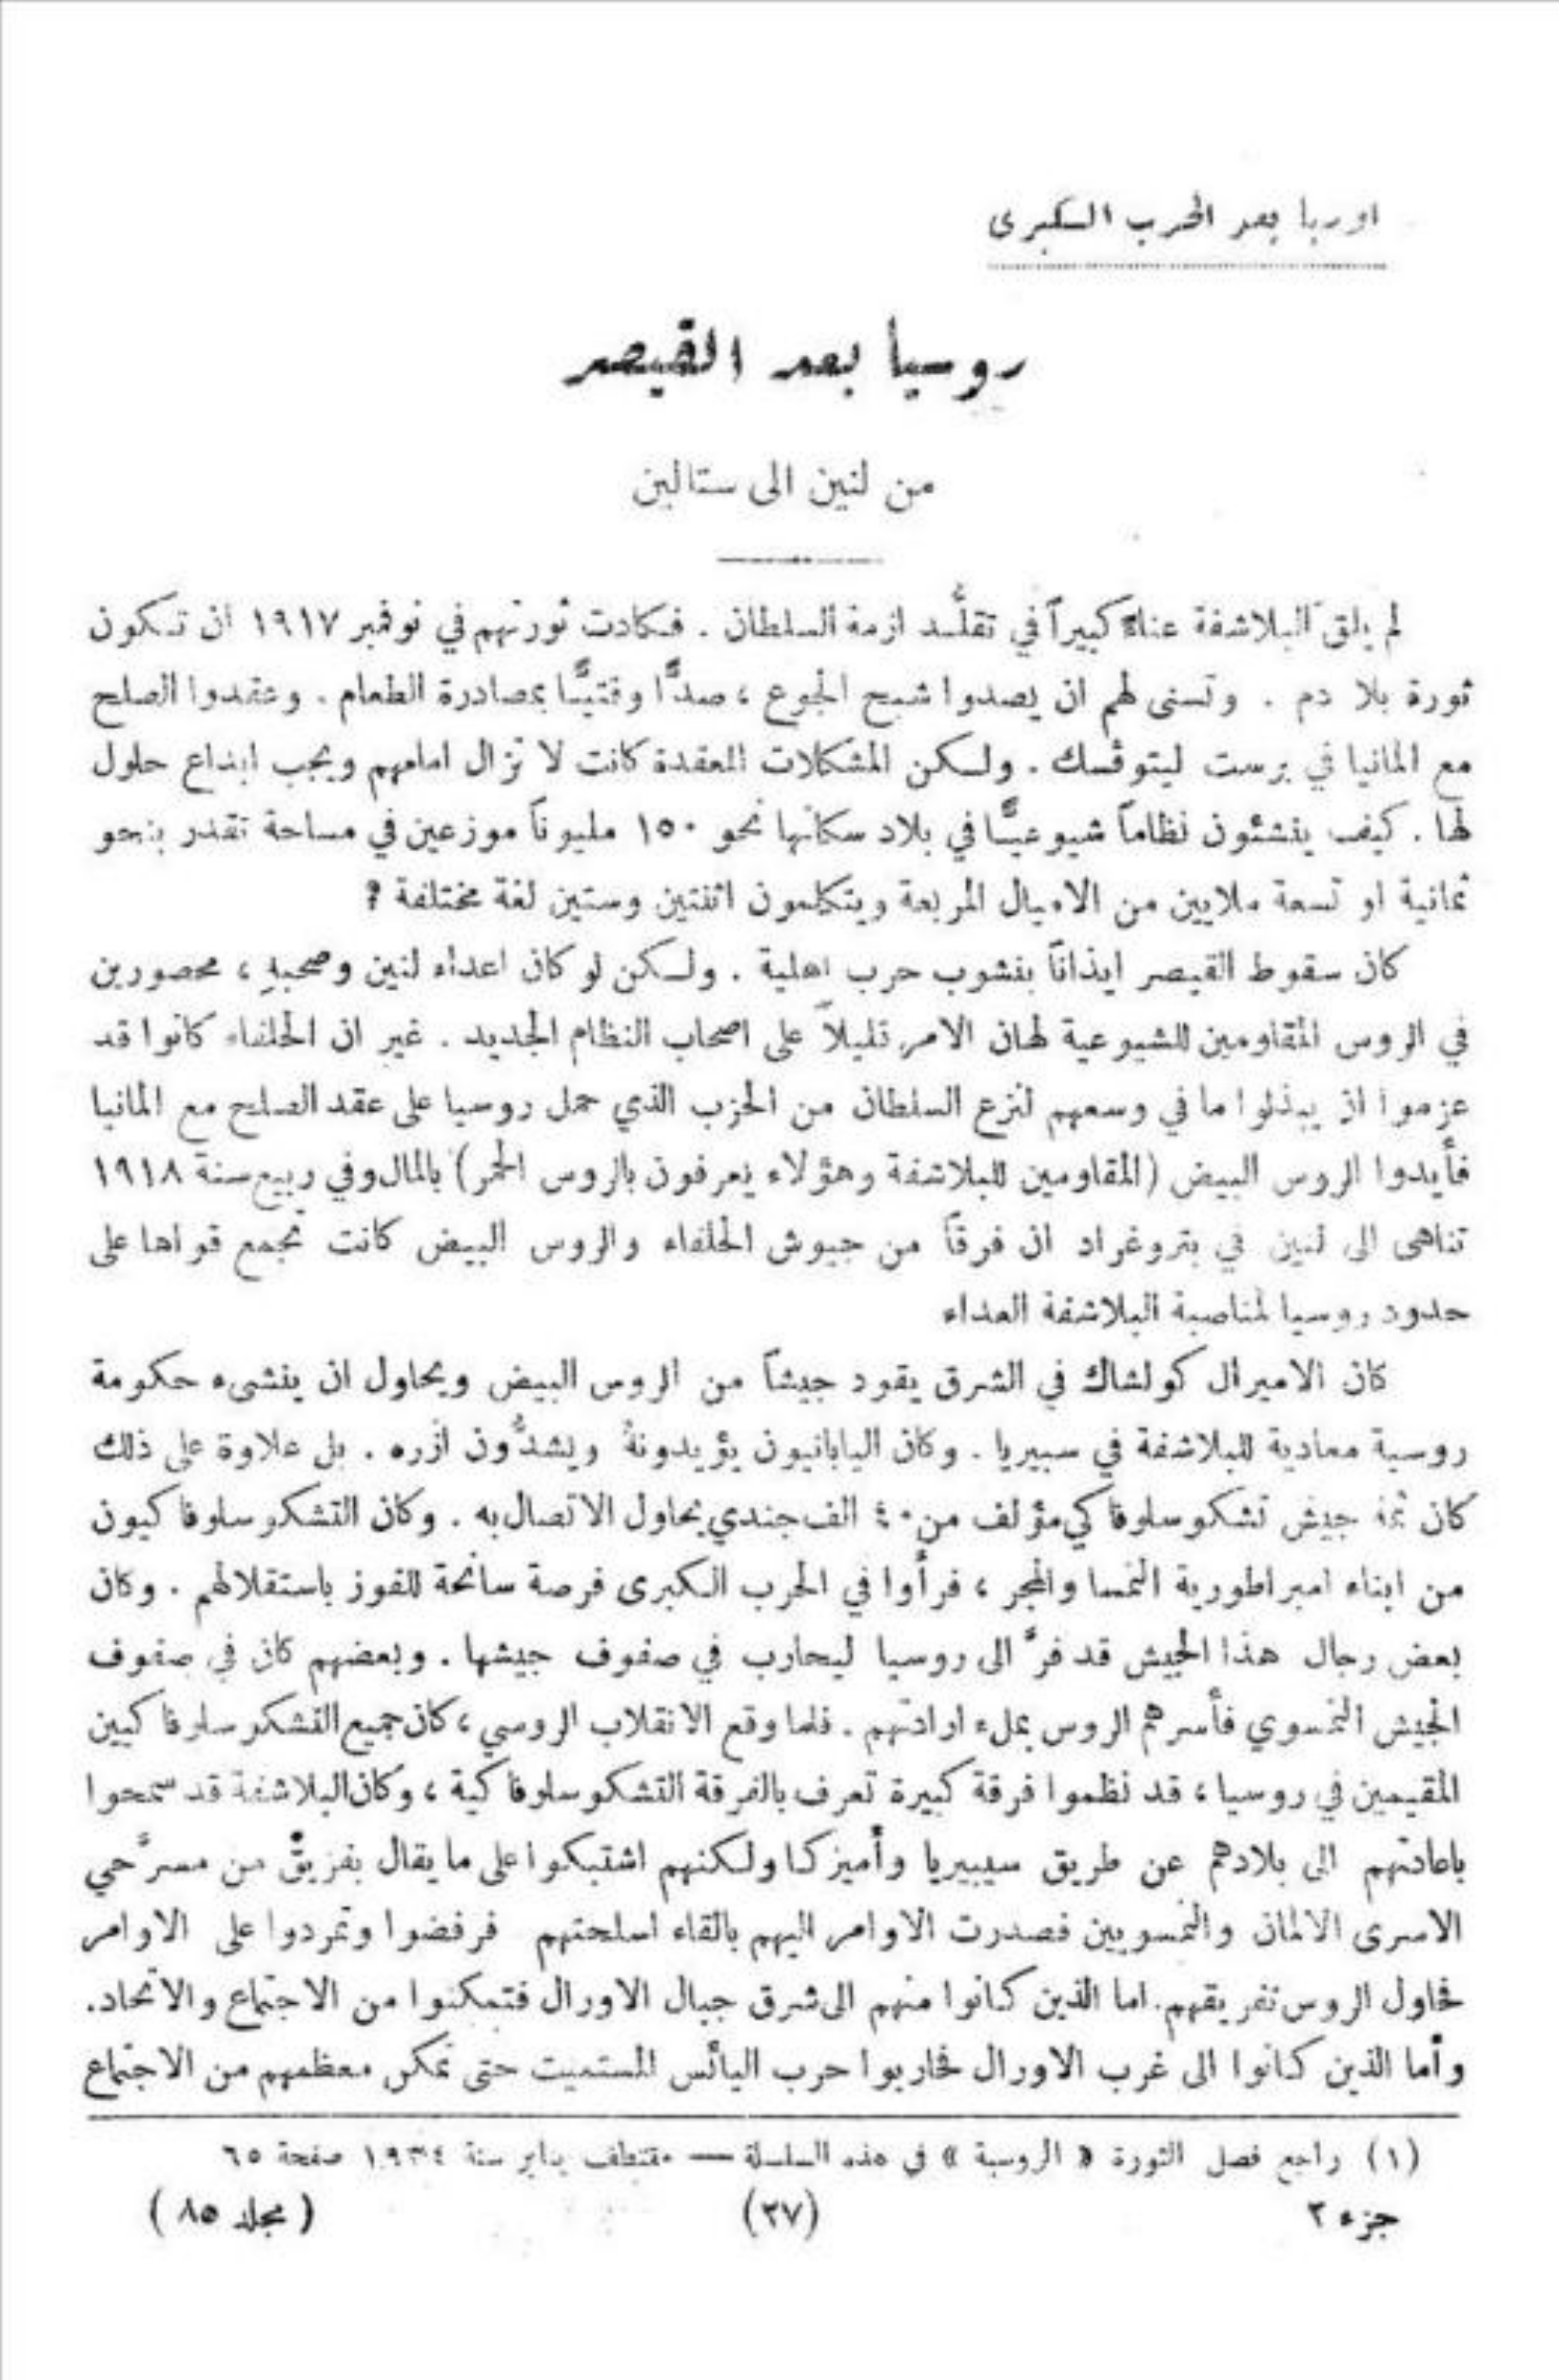 اوربا بعد الحرب الكبرى
روسيا بعد القيصر
من لنين الى ستالين
لم يلقَ البلاشفة عناءً كبيراً في تقلُّد ازمة السلطان . فكادت ثورتهم في نوفمبر ١٩١٧ ان تكون
ثورة بلا دم . وتسنى لهم ان يصدوا شبح الجوع ، صدًّا وقتيًّا بمصادرة الطعام . وعقدوا الصلح
مع المانيا في برست ليتوفسك . ولكن المشكلات المعقدة كانت لا تزال امامهم ويجب ابداع حلول
لها . كيف ينشئون نظاماً شيوعيًّا في بلاد سكانها نحو ١٥٠ مليوناً موزعين في مساحة تقدر بنحو
ثمانية او تسعة ملايين من الاميال المربعة ويتكلمون اثنتين وستين لغة مختلفة ؟
كان سقوط القيصر ايذاناً بنشوب حرب اهلية . ولكن لو كان اعداء لنين وصحبهِ ، محصورين
في الروس المقاومين للشيوعية لهان الامر قليلاً على اصحاب النظام الجديد . غير ان الحلفاء كانوا قد
عزموا ان يبذلوا ما في وسعهم لنزع السلطان من الحزب الذي حمل روسيا على عقد الصلح مع المانيا
فأيدوا الروس البيض (المقاومين للبلاشفة وهؤلاء يعرفون بالروس الحمر) بالمال وفي ربيع سنة ١٩١٨
تناهى الى لنين في بتروغراد ان فرقاً من جيوش الحلفاء والروس البيض كانت تجمع قواها على
حدود روسيا لمناصبة البلاشفة العداء
كان الاميرال كولشاك في الشرق يقود جيشاً من الروس البيض ويحاول ان ينشىء حكومة
روسية معادية للبلاشفة في سبيريا . وكان اليابانيون يؤيدونهُ ويشدُّون ازره . بل علاوة على ذلك
كان ثمة جيش تشكوسلوفاكي مؤلف من ٤٠ الف جندي يحاول الاتصال به . وكان التشكوسلوفاكيون
من ابناء امبراطورية النمسا والمجر ، فرأوا في الحرب الكبرى فرصة سانحة للفوز باستقلالهم . وكان
بعض رجال هذا الجيش قد فرَّ الى روسيا ليحارب في صفوف جيشها . وبعضهم كان في صفوف
الجيش النمسوي فأسرهم الروس بملء ارادتهم . فلما وقع الانقلاب الروسي ، كان جميع التشكوسلوفاكيين
المقيمين في روسيا ، قد نظموا فرقة كبيرة تعرف بالفرقة التشكوسلوفاكية ، وكان البلاشفة قد سمحوا
باعادتهم الى بلادهم عن طريق سيبيريا وأميركا ولكنهم اشتبكوا على ما يقال بفريقٍ من مسرَّحي
الاسرى الالمان والنمسويين فصدرت الاوامر اليهم بالقاء اسلحتهم فرفضوا وتمردوا على الاوامر
فحاول الروس تفريقهم. اما الذين كانوا منهم الى شرق جبال الاورال فتمكنوا من الاجتماع والاتحاد.
وأما الذين كانوا الى غرب الاورال فحاربوا حرب اليائس المستميت حتى تمكن معظمهم من الاجتماع
(١) راجع فصل الثورة « الروسية » في هذه السلسلة — مقتطف يناير سنة ١٩٣٤ صفحة ٦٥
جزء ٢ (٢٧) (مجلد ٨٥)